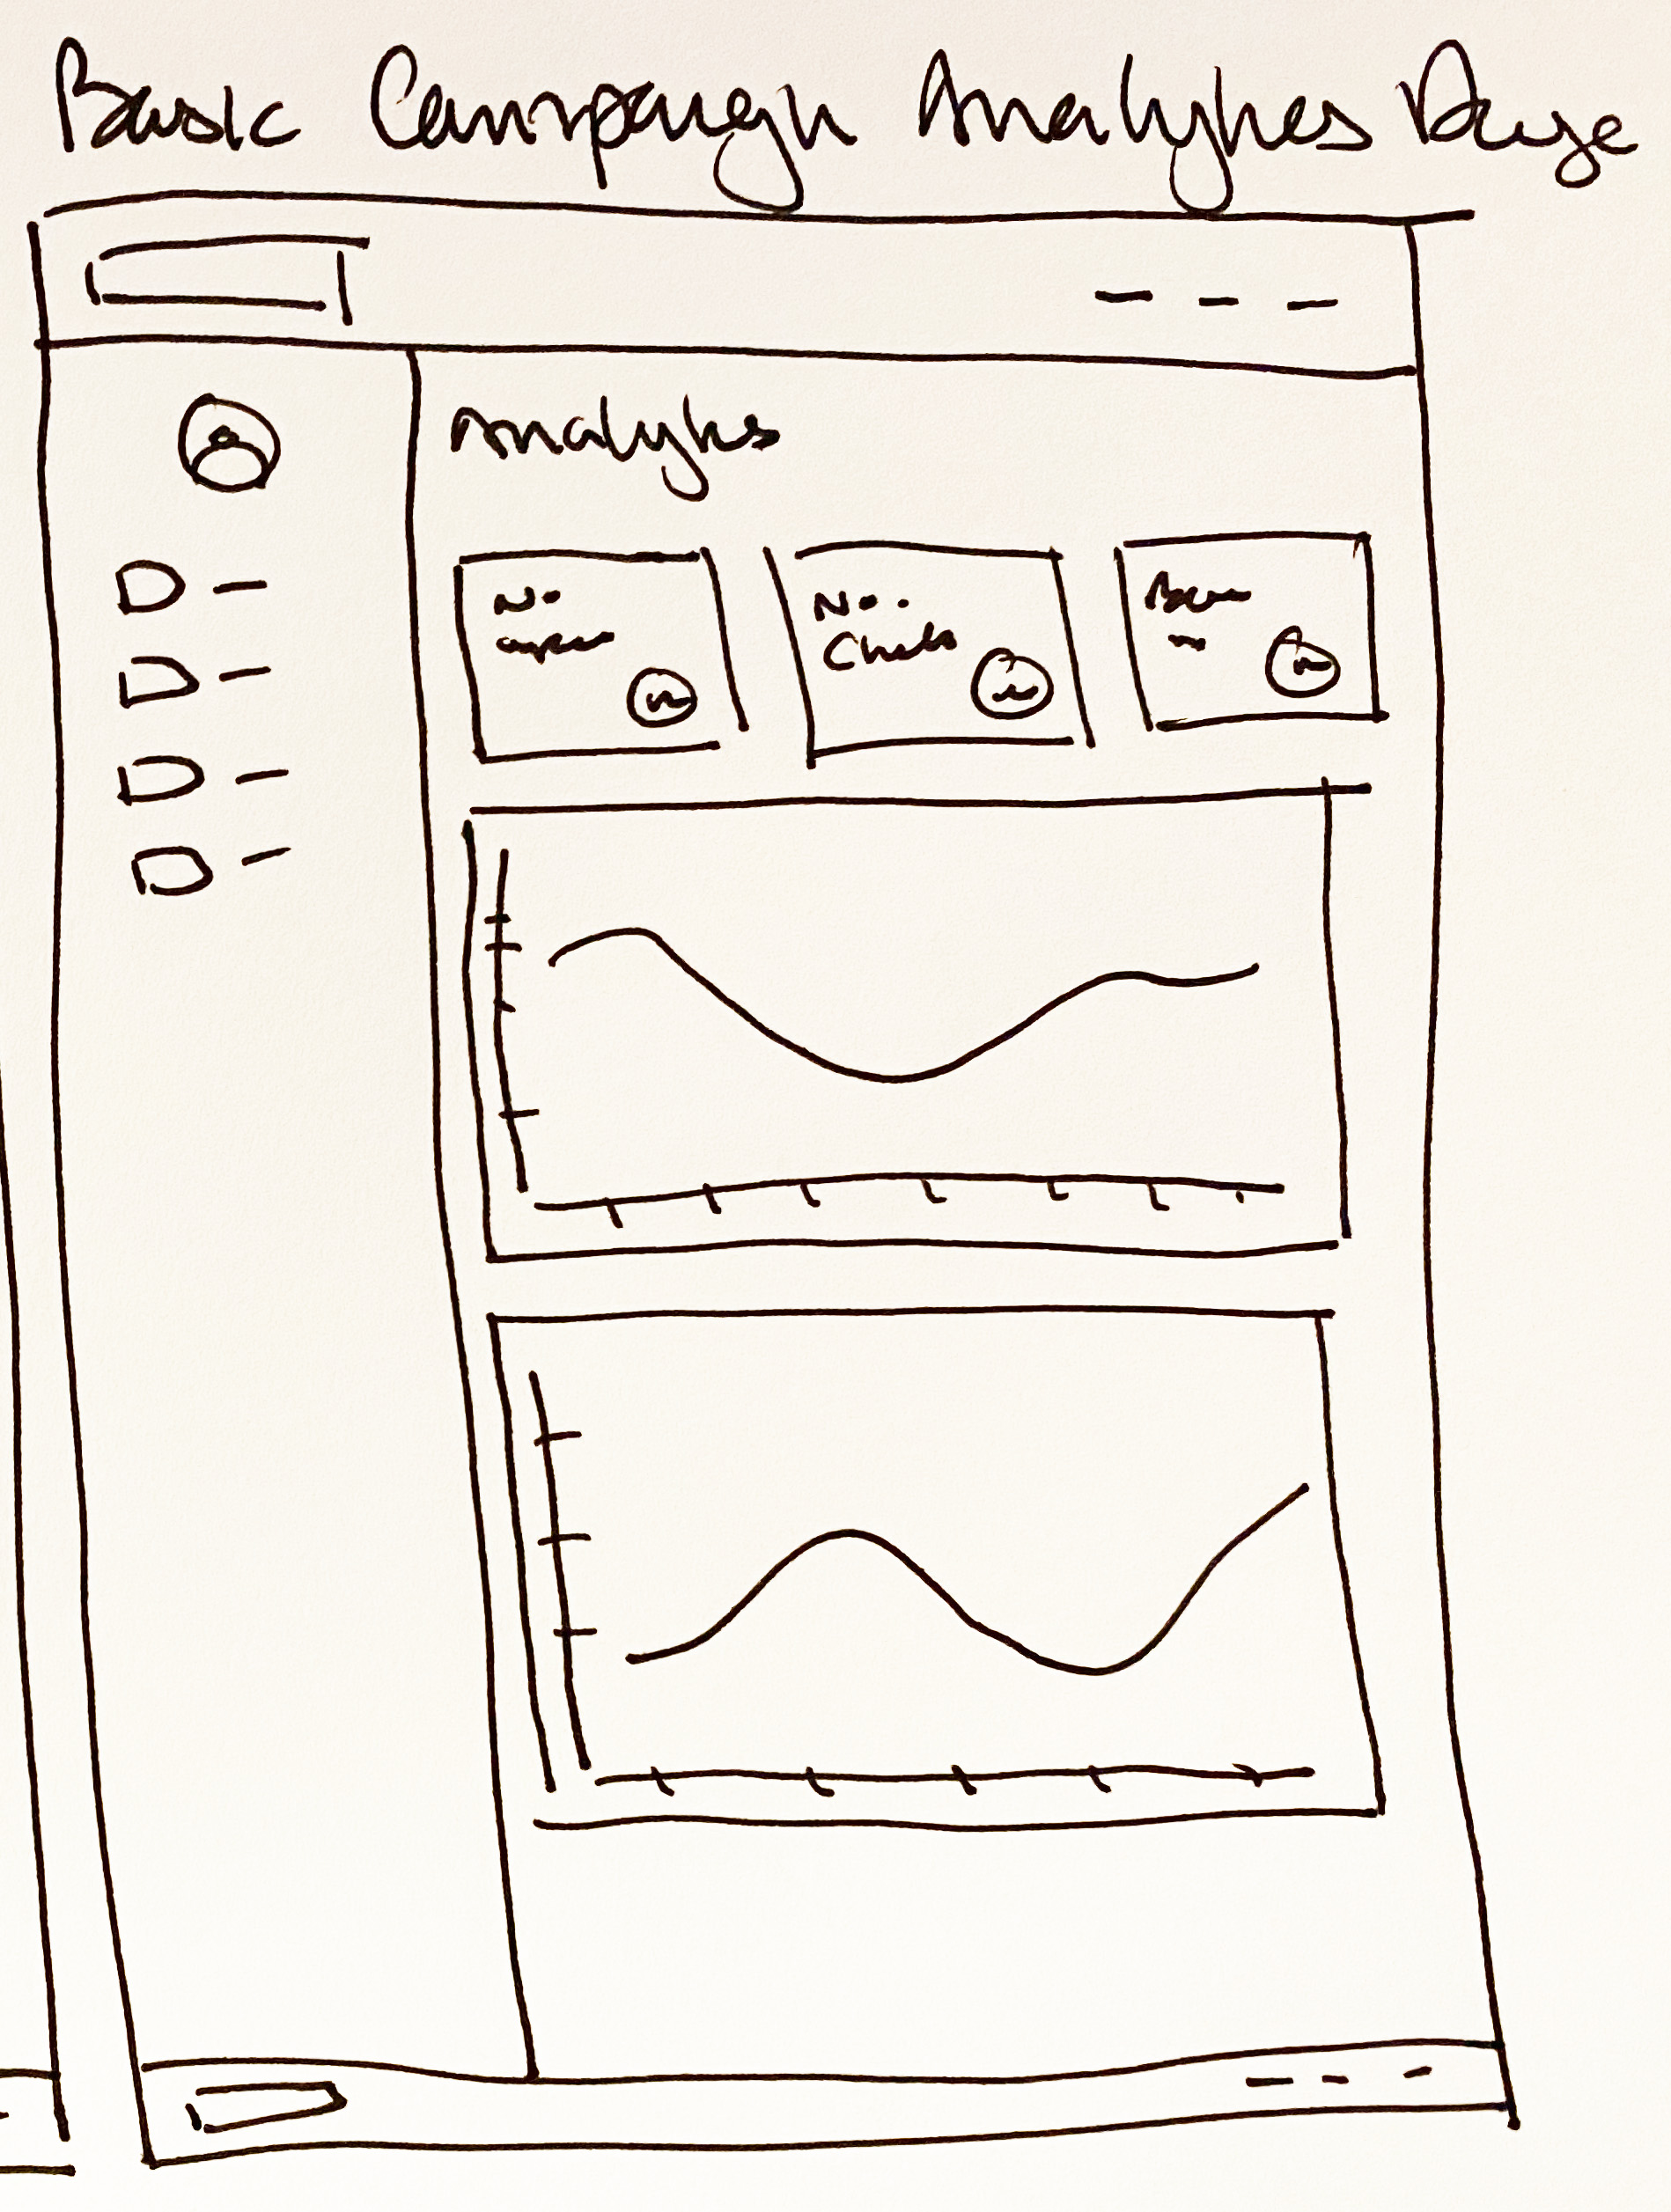 Basic Campaign Analytics Page
Analytics
No.
No.
Clicks